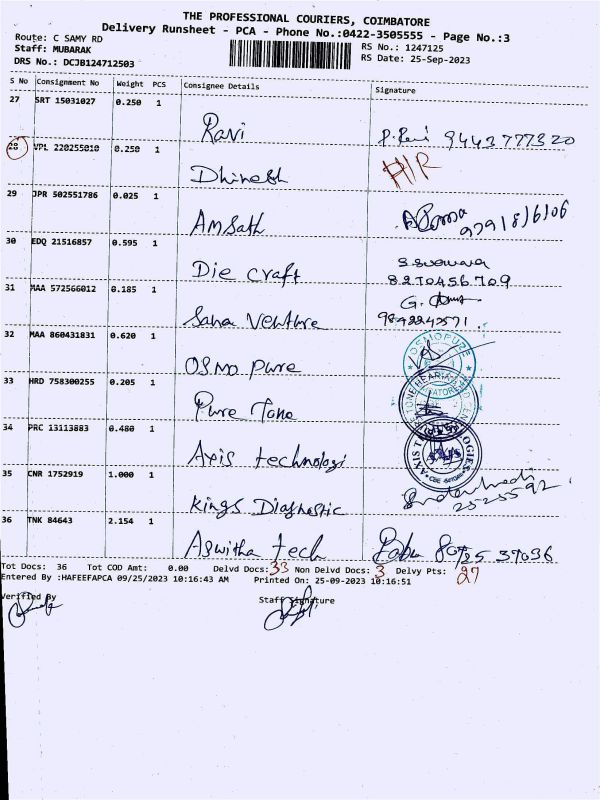 THE PROFESSIONAL COURIERS, COIMBATORE
Delivery Runsheet - PCA - Phone No.:0422-3505555 - Page No.:3
Route: C SAMY RD
Staff: MUBARAK
DRS No.: DCJB124712503
RS No.: 1247125
RS Date: 25-Sep-2023
S No Consignment No Weight PCS Consignee Details Signature
27 SRT 15031027 0.250 1
Ravi P. Ravi 9443777320
28 VPL 220255010 0.250 1
Dhinesh H/R
29 JPR 502551786 0.025 1
Amsath
30 EDQ 21516857 0.595 1
Die craft 8270456709
31 MAA 572566012 0.185 1
Sana Venture 9842242571
32 MAA 860431831 0.620 1
Osmo pure OSMOPURE
33 HRD 758300255 0.205 1
Pure Tone
34 PRC 13113883 0.480 1
Axis technologi AXIS TECHNOLOGIES
35 CNR 1752919 1.000 1
Kings Diagnostic
36 TNK 84643 2.154 1
Aswitha tech Babu
Tot Docs: 36 Tot COD Amt: 0.00 Delvd Docs: 33 Non Delvd Docs: 3 Delvy Pts: 27
Entered By :HAFEEFAPCA 09/25/2023 10:16:43 AM Printed On: 25-09-2023 10:16:51
Verified By Staff Signature